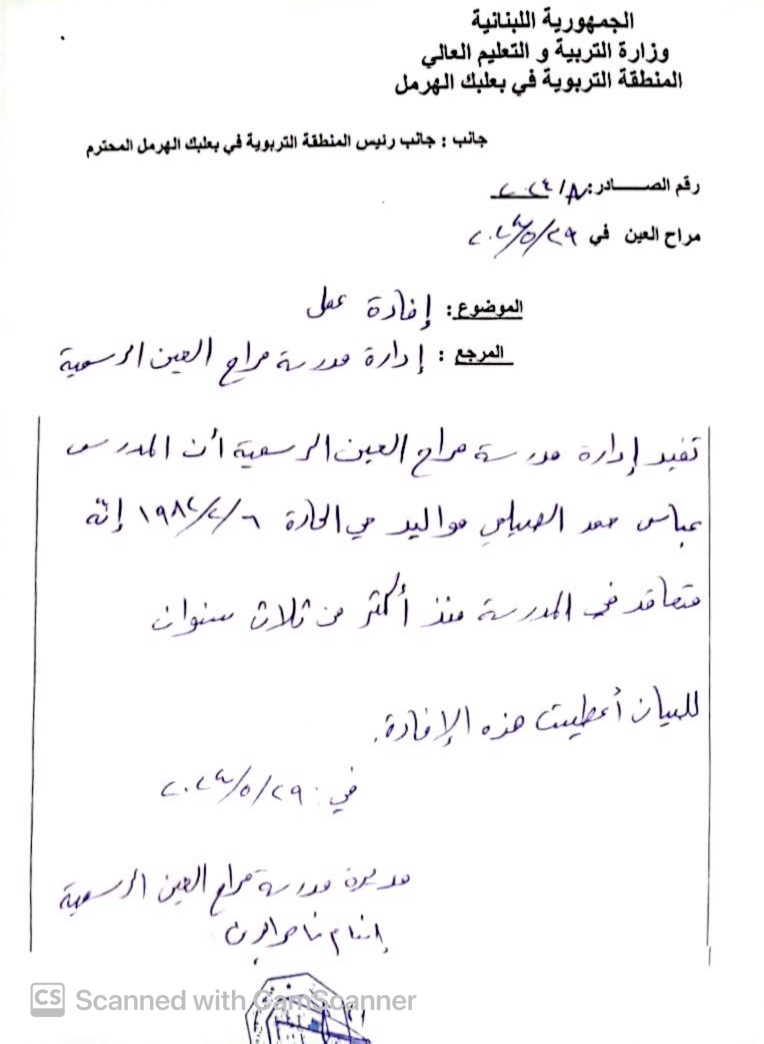 الجمهورية اللبنانية
وزارة التربية و التعليم العالي
المنطقة التربوية في بعلبك الهرمل
جانب : جانب رئيس المنطقة التربوية في بعلبك الهرمل المحترم
رقم الصــــادر: ٨/ ٢٠٢٤
مراح العين في ٢٩/٥/٢٠٢٤
الموضوع: إفادة عمل
المرجع : إدارة مدرسة مراح العين الرسمية
تفيد إدارة مدرسة مراح العين الرسمية أن المدرس
عباس حمد مواليد حي الحارة ٦/٢/١٩٨٢ إنّه
متعاقد في المدرسة منذ أكثر من ثلاث سنوات
للبيان أعطيت هذه الإفادة.
في: ٢٩/٥/٢٠٢٤
مديرة مدرسة مراح العين الرسمية
ناصر الدين
CS Scanned with CamScanner